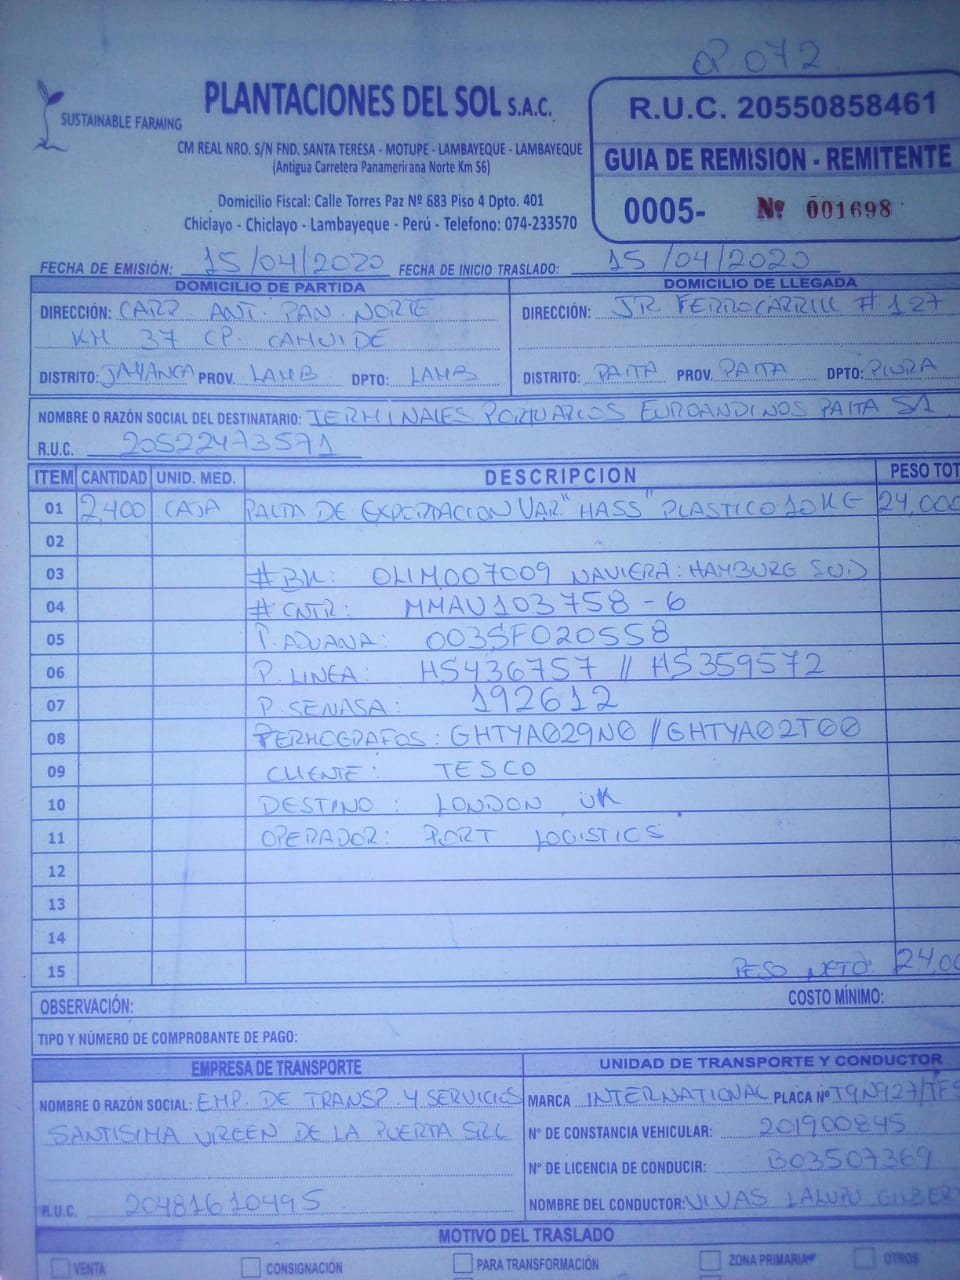 OP 072
SUSTAINABLE FARMING
PLANTACIONES DEL SOL S.A.C.
CM REAL NRO. S/N FND. SANTA TERESA - MOTUPE - LAMBAYEQUE - LAMBAYEQUE
(Antigua Carretera Panamericana Norte Km 56)
Domicilio Fiscal: Calle Torres Paz Nº 683 Piso 4 Dpto. 401
Chiclayo - Chiclayo - Lambayeque - Perú - Telefono: 074-233570
R.U.C. 20550858461
GUIA DE REMISION - REMITENTE
0005- Nº 001698
FECHA DE EMISIÓN: 15/04/2020 FECHA DE INICIO TRASLADO: 15/04/2020
DOMICILIO DE PARTIDA
DIRECCIÓN: CARR. ANT. PAN. NORTE
KM 37 CP. CAHUIDE
DISTRITO: JAYANCA PROV. LAMB DPTO: LAMB
DOMICILIO DE LLEGADA
DIRECCIÓN: JR FERROCARRIL # 127
DISTRITO: PAITA PROV. PAITA DPTO: PIURA
NOMBRE O RAZÓN SOCIAL DEL DESTINATARIO: TERMINALES PORTUARIOS EUROANDINOS PAITA SA
R.U.C. 20522473571
ITEM CANTIDAD UNID. MED. DESCRIPCION PESO TOT
01 2,400 CAJA PALTA DE EXPORTACION VAR. "HASS" PLASTICO 10 KG 24,000
02
03 # BK: OLIM007009 NAVIERA: HAMBURG SUD
04 # CNTR: MMAU103758-6
05 P. ADUANA: 003SF020558
06 P. LINEA: HS436757 // HS359572
07 P. SENASA: 192612
08 TERMOGRAFOS: GHTYA029N0 // GHTYA02T00
09 CLIENTE: TESCO
10 DESTINO: LONDON UK
11 OPERADOR: PORT LOGISTICS
12
13
14
15 PESO NETO: 24,00
OBSERVACIÓN: COSTO MÍNIMO:
TIPO Y NÚMERO DE COMPROBANTE DE PAGO:
EMPRESA DE TRANSPORTE
NOMBRE O RAZÓN SOCIAL: EMP. DE TRANSP. Y SERVICIOS
SANTISIMA VIRGEN DE LA PUERTA SRL
R.U.C. 20481610495
UNIDAD DE TRANSPORTE Y CONDUCTOR
MARCA INTERNATIONAL PLACA Nº T9N927/
Nº DE CONSTANCIA VEHICULAR: 201900845
Nº DE LICENCIA DE CONDUCIR: B03507369
NOMBRE DEL CONDUCTOR: VIVAS LALUPU GILBER
MOTIVO DEL TRASLADO
VENTA CONSIGNACIÓN PARA TRANSFORMACIÓN ZONA PRIMARIA OTROS